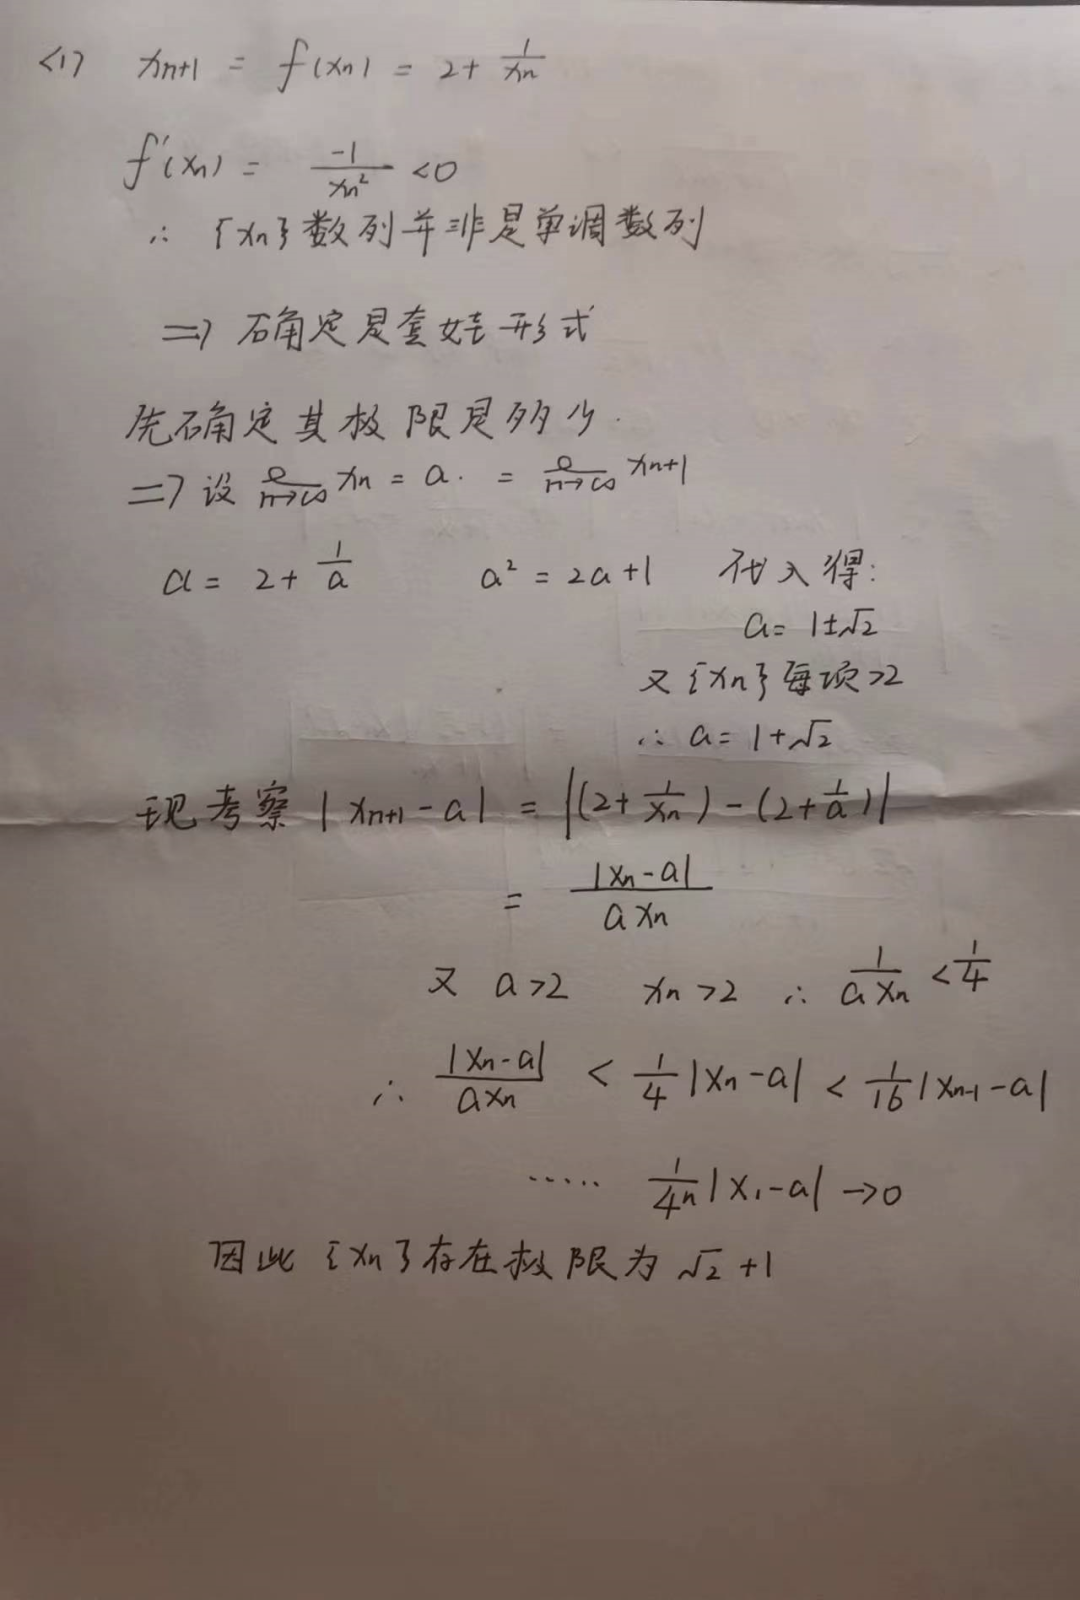 <1> xn+1 = f(xn) = 2 + 1/xn
f'(xn) = -1/xn² <0
∴ {xn}数列并非是单调数列
=> 确定是套娃形式
先确定其极限是多少.
=> 设 n→∞ xn = a. = n→∞ xn+1
a = 2 + 1/a a² = 2a+1 代入得:
a = 1±√2
又{xn}每项>2
∴ a = 1+√2
现考察 |xn+1 - a| = |(2+1/xn) - (2+1/a)|
= |xn-a|/axn
又 a>2 xn>2 ∴ 1/axn < 1/4
∴ |xn-a|/axn < 1/4|xn-a| < 1/16|xn-1-a|
····· 1/4ⁿ|x₁-a| →0
因此{xn}存在极限为√2+1